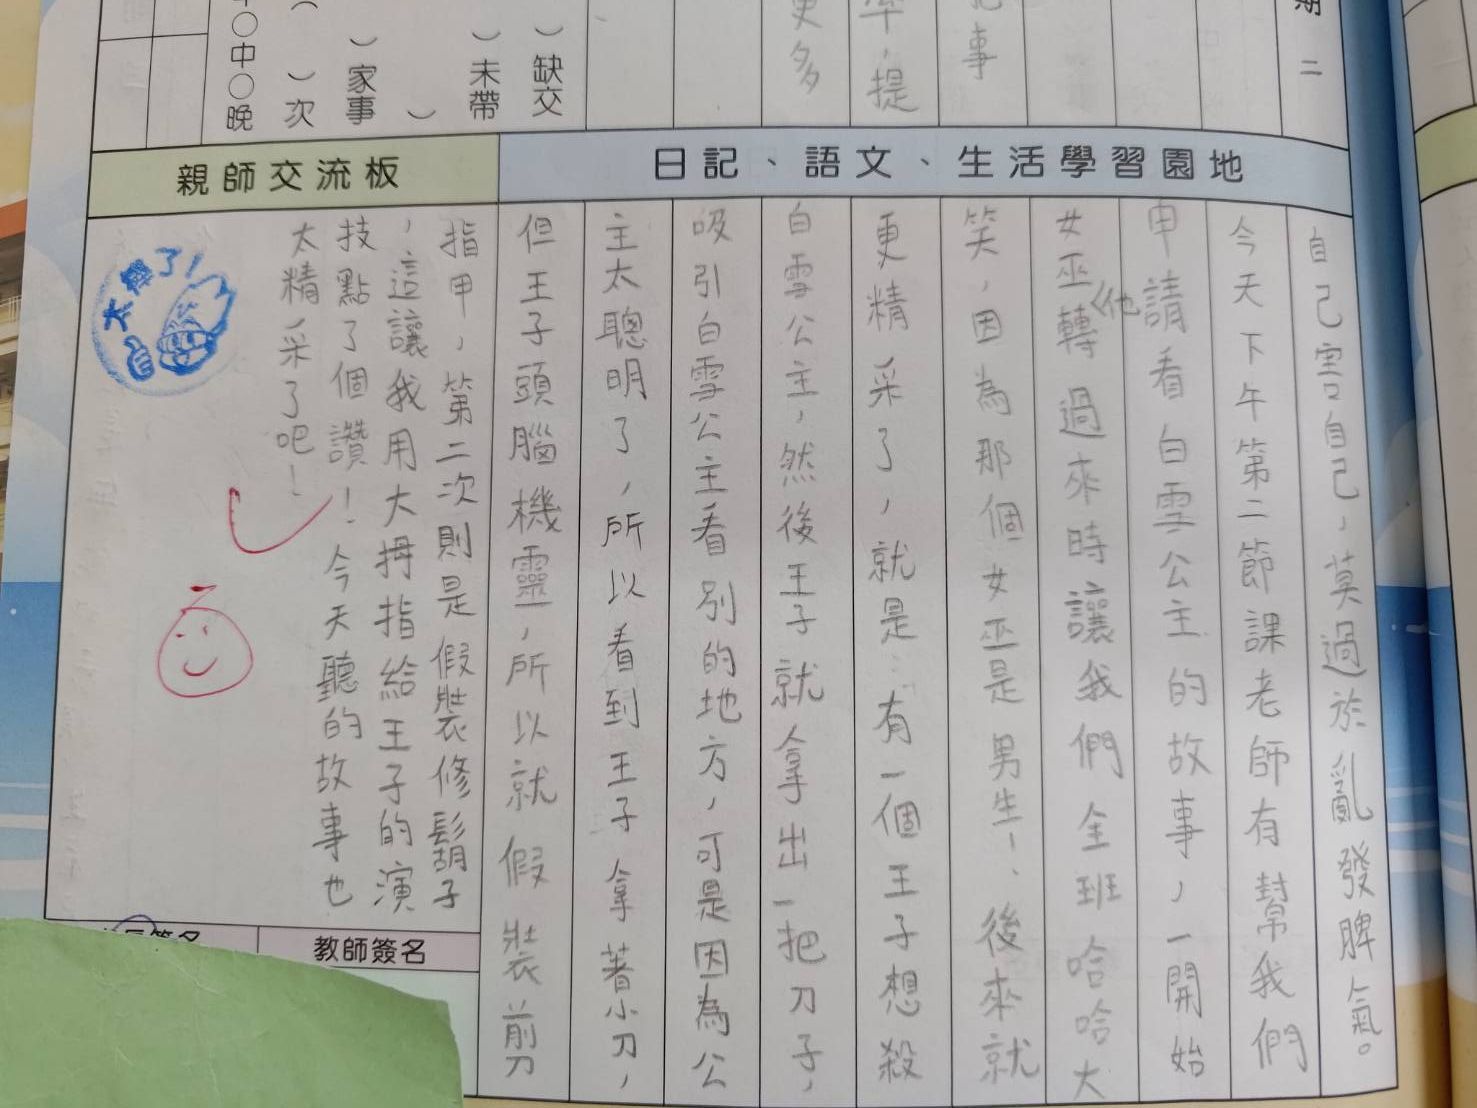 期 二
記事
率,提
更多
)缺交
)未帶
)
)家事
( )次
中○晚
日記、語文、生活學習園地
親師交流板
自己害自己,莫過於亂發脾氣。
今天下午第二節課老師有幫我們
申請看白雪公主的故事,一開始
女巫轉過來時讓我們全班哈哈大
他
笑,因為那個女巫是男生!後來就
更精采了,就是:有一個王子想殺
白雪公主,然後王子就拿出一把刀子,
吸引白雪公主看別的地方,可是因為公
主太聰明了,所以看到王子拿著小刀,
但王子頭腦機靈,所以就假裝剪
指甲,第二次則是假裝修鬍子
,這讓我用大拇指給王子的演
技點了個讚!今天聽的故事也
太精采了吧!
太棒了!
教師簽名
簽名